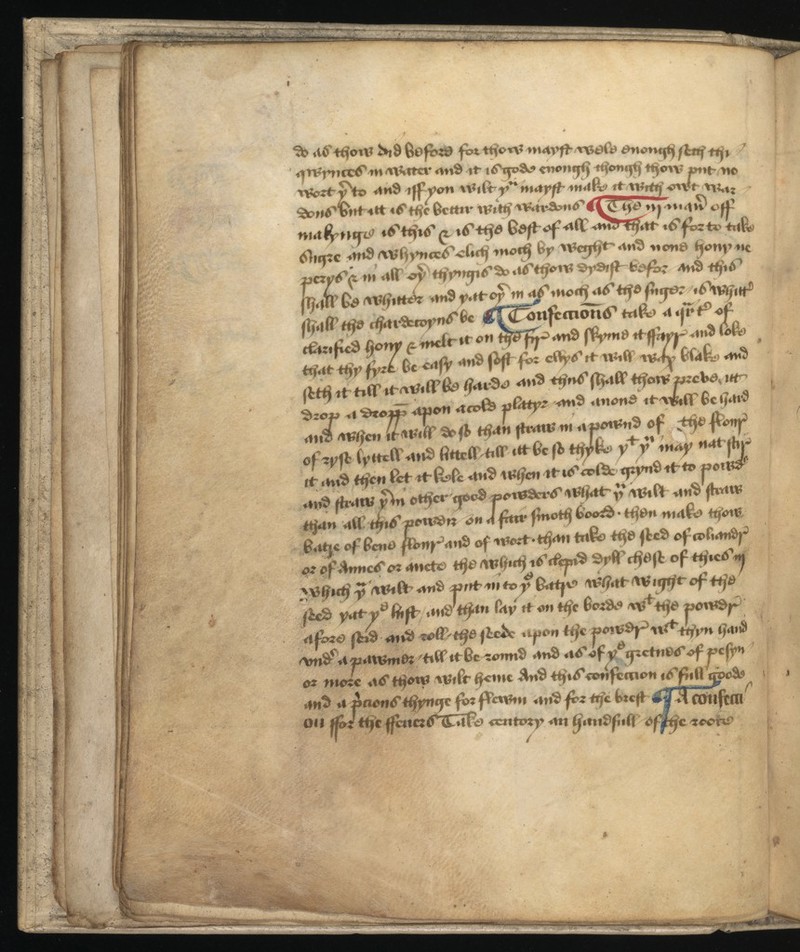 do as thow did before for thow mayst wele enough seth thi
qwynces in water and it is gode enough though thow put no
wort yͤ to and iff yow wilt yᵘ mayst make it with owt war
dons but itt is the bettir with wardons ¶ The iij maner off
makynge is this & is the best of all and that is for to take
sugre and whynces elich moch by weght and none hony ne
perys & in all oyͬ thyngis do as thow dydist befor and this
shall be whitter and yat oyͬ in as moch as the suger is whitter
shall the chardecoyns be ¶ Confeccions take a qͬtͬ of
clarified hony & melt it on the fyr and skyme it ffayr and loke
that thy fyre be easy and soft for ellys it will wax blake and
seth it till it will be harde and thus shall thow preve itt
drop a dropp apon a cold platyr and anone it will be hard
and when it will do so than straw in a pownd of the flour
of ryse lyttell and littell till itt be so thyke yᵗ yᵘ may nat stir
it and then let it kele and when it is colde grynd it to powdͬ
and straw yͤin other good powders what yᵘ wilt and straw
than all this powder on a fair smoth boord · then make thow
batre of bene flour and of wort · than take the seed of coliandͬ
or of Annes or aneto the which is clepid dyll chese of thies iij
which yᵘ wilt and put in to yᵉ batre what wight of the
seed yat yᵉ lust and than lay it on the borde wᵗ the powdͬ
afore seid and roll the seede apon the powdͬ wᵗ thyn hand
undͬ a pawmer till it be round and as of yᵉ gretnes of pesyn
or more as thow wilt heme And this confeccion is full goode
and a pͬcious thynge for flewm and for the brest ¶ A confecci
on ffor the ffeuers Take centory an handfull of the roote